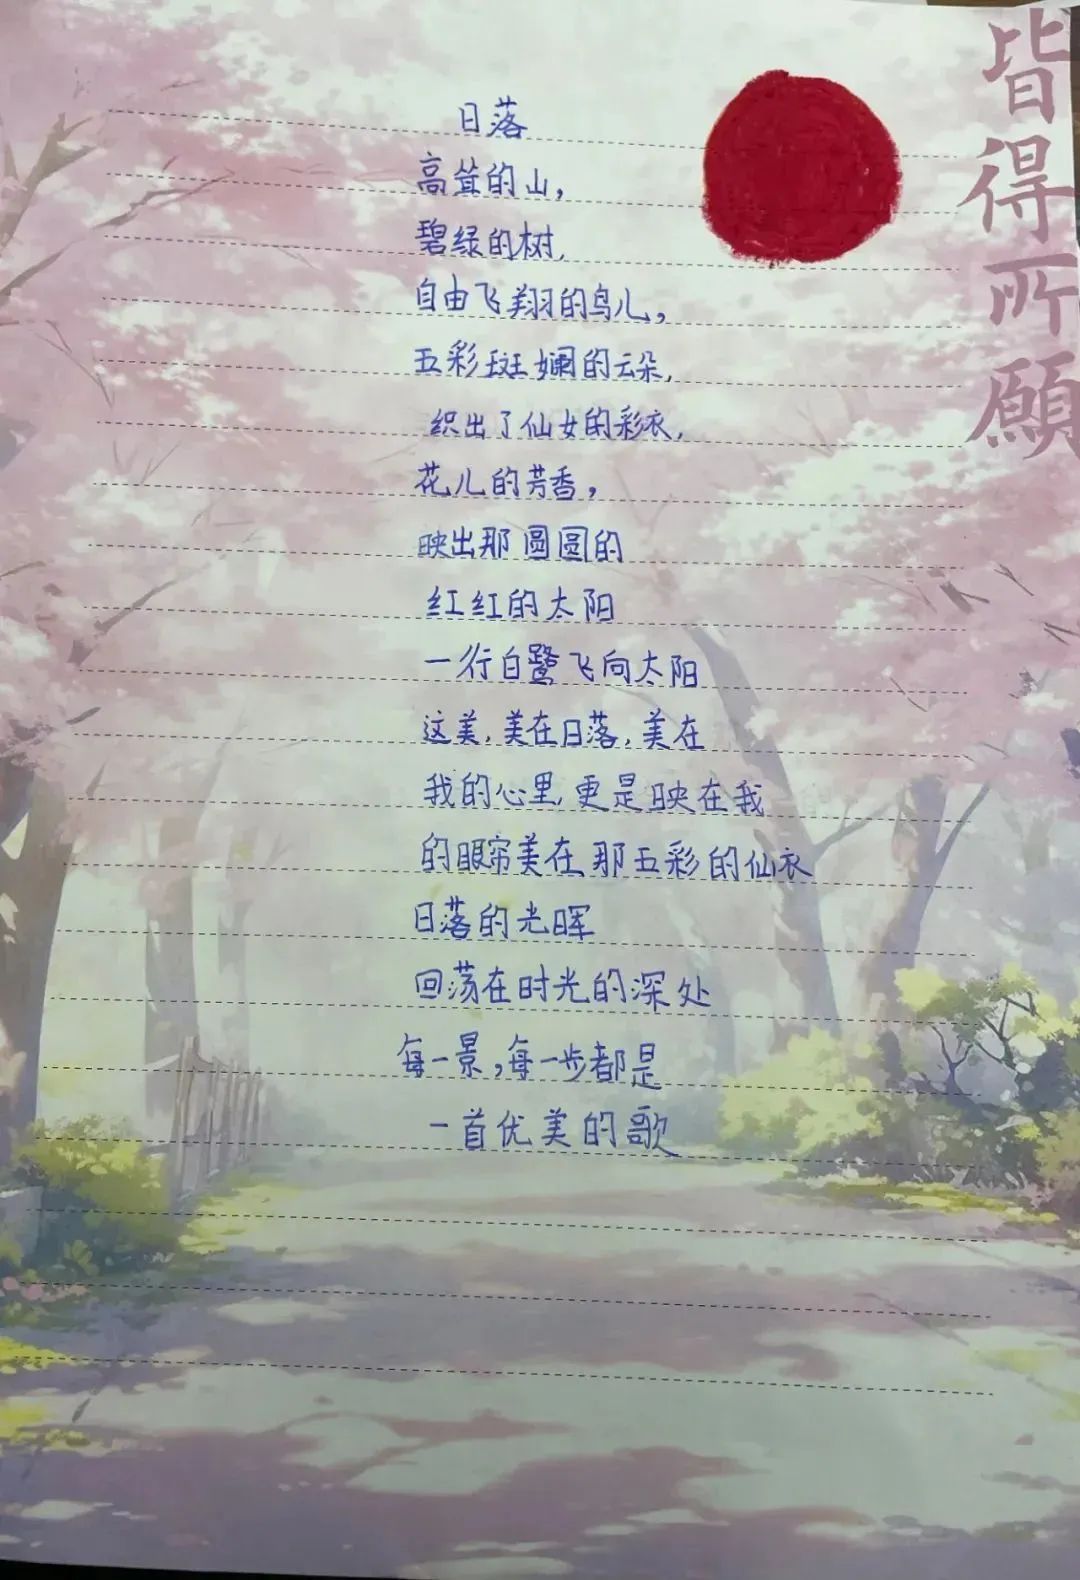 日落
高耸的山，
碧绿的树，
自由飞翔的鸟儿，
五彩斑斓的云朵，
织出了仙女的彩衣，
花儿的芳香，
映出那圆圆的
红红的太阳
一行白鹭飞向太阳
这美，美在日落，美在
我的心里，更是映在我
的眼帘美在那五彩的仙衣
日落的光晖
回荡在时光的深处
每一景，每一步都是
一首优美的歌
皆得所願